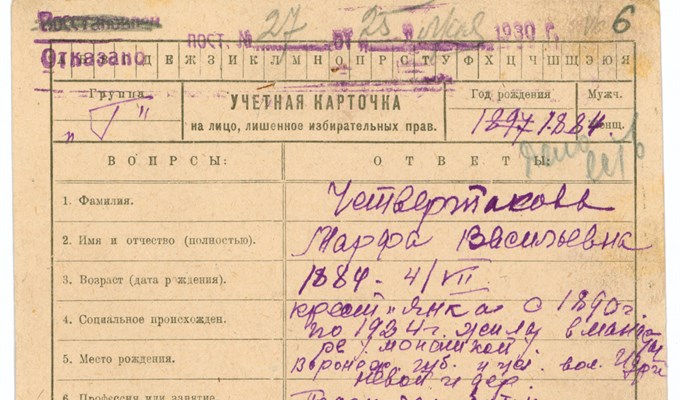 Восстановлен
Отказано
ПОСТ. № 27 ОТ " 25 " мая 1930 г.
6
Д Е Ж З И К Л М Н О П Р С Т У Ф Х Ц Ч Ш Щ Э Ю Я
Группа
" V "
УЧЕТНАЯ КАРТОЧКА
на лицо, лишенное избирательных прав.
Год рождения
1897 1884.
Мужч.
Женщ.
дело есть
ВОПРОСЫ:
ОТВЕТЫ:
1. Фамилия.
Четвертакова
2. Имя и отчество (полностью).
Марфа Васильевна
3. Возраст (дата рождения).
1884 - 4/VII
4. Социальное происхожден.
крест"янка с 1890 г.
по 1924 г. жила в
монашкой
5. Место рождения.
Воронеж. губ. и уез. вол.
дер.
6. Профессия или занятие